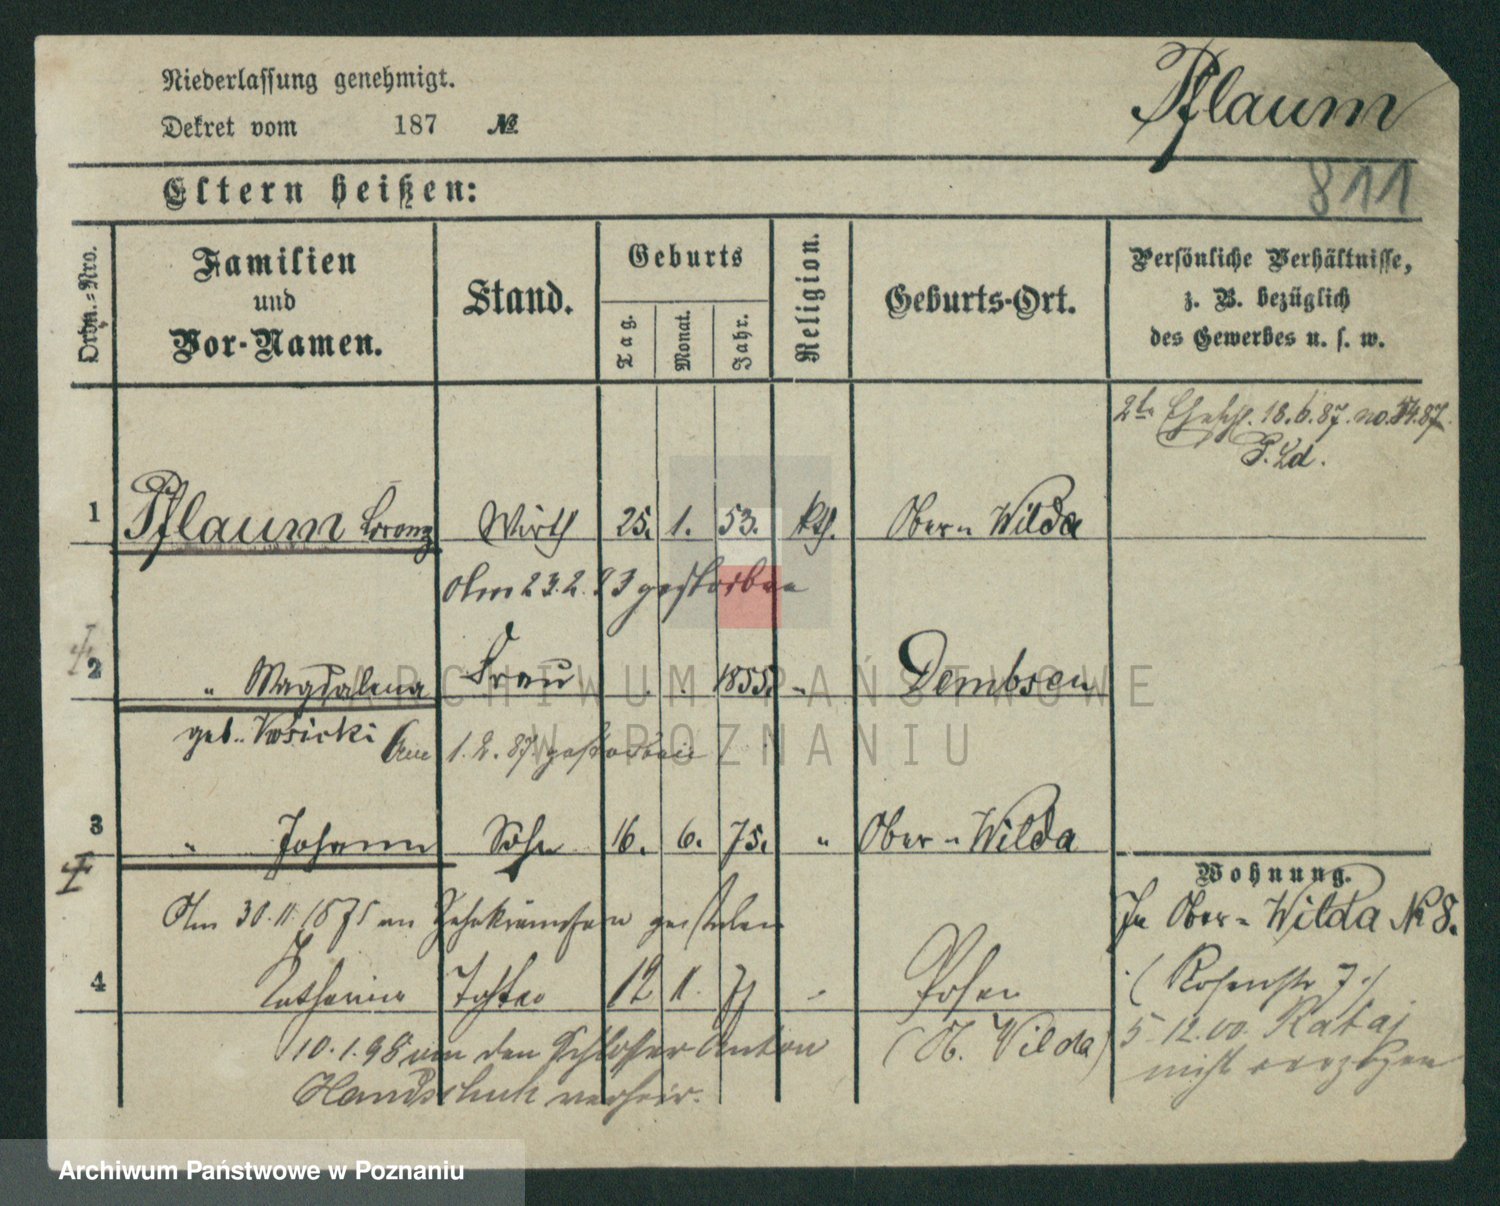 Niederlassung genehmigt.
Dekret vom 187 №
Pflaum
811
Eltern heißen:
Ordn.=Nro.
Familien und Vor-Namen.
Stand.
Geburts
Tag.
Monat.
Jahr.
Religion.
Geburts-Ort.
Persönliche Verhältnisse,
z. B. bezüglich
des Gewerbes u. s. w.
2te 18.6.87. no. 54.87.
P. Ld.
1 Pflaum Lorenz Wirth 25. 1. 53. kth. Ober- Wilda
Am 23.2.93 gestorben
2 " Magdalena Frau 1855. " Dembsen
geb. Kosicki Am 1.2.87. gestorben
3 " Johann Sohn 16. 6. 75. " Ober- Wilda
Wohnung.
Am 30.11.1875 an gestorben
In Ober- Wilda № 8.
4 Katharina Tochter 12 11. 77 " Posen
(Rosenstr 7.)
10.1.98 an den Schlosser Anton
(O. Wilda)
5-12.00. Rataj
Handschuh verheir.
nicht verzogen
ARCHIWUM PAŃSTWOWE
W POZNANIU
Archiwum Państwowe w Poznaniu